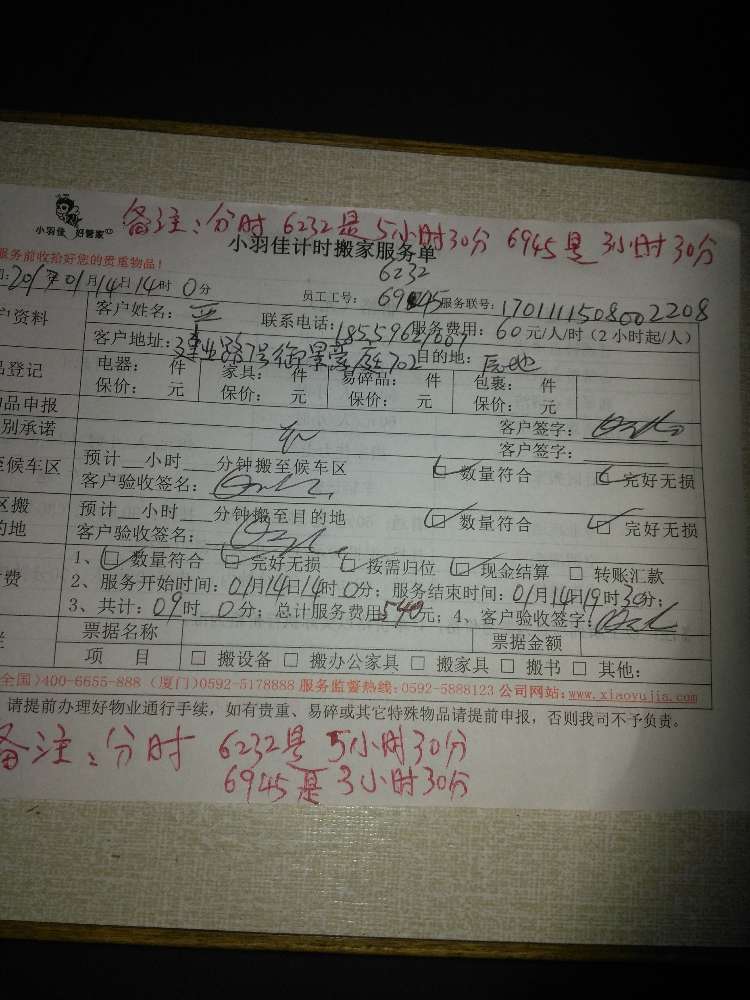 小羽佳 好管家
备注:分时 6232是 5小时30分 6945是 3小时30分
小羽佳计时搬家服务单
服务前收拾好您的贵重物品!
6232
2017年01月14日14时0分 员工工号: 6945 服务联号: 1701111508002208
户资料 客户姓名: 联系电话: 服务费用: 60元/人/时(2小时起/人)
客户地址: 建业路7号御景 702 目的地:
品登记 电器: 件 家具: 件 易碎品: 件 包裹: 件
保价: 元 保价: 元 保价: 元 保价: 元
品申报 客户签字:
别承诺 客户签字:
至候车区 预计__小时__分钟搬至候车区 数量符合 完好无损
客户验收签名:
区搬 预计__小时__分钟搬至目的地 数量符合 完好无损
的地 客户验收签名:
1、 数量符合 完好无损 按需归位 现金结算 □ 转账汇款
费 2、服务开始时间: 01月14日14时0分; 服务结束时间: 01月14日19时30分;
3、共计: 09时 0分; 总计服务费用540元; 4、客户验收签字:
票据名称 票据金额
项 目 □ 搬设备 □ 搬办公家具 □ 搬家具 □ 搬书 □ 其他:
全国)400-6655-888 (厦门)0592-5178888 服务监督热线:0592-5888123 公司网站:www.xiaoyujia.com
请提前办理好物业通行手续,如有贵重、易碎或其它特殊物品请提前申报,否则我司不予负责。
备注:分时 6232是 5小时30分
6945是 3小时30分